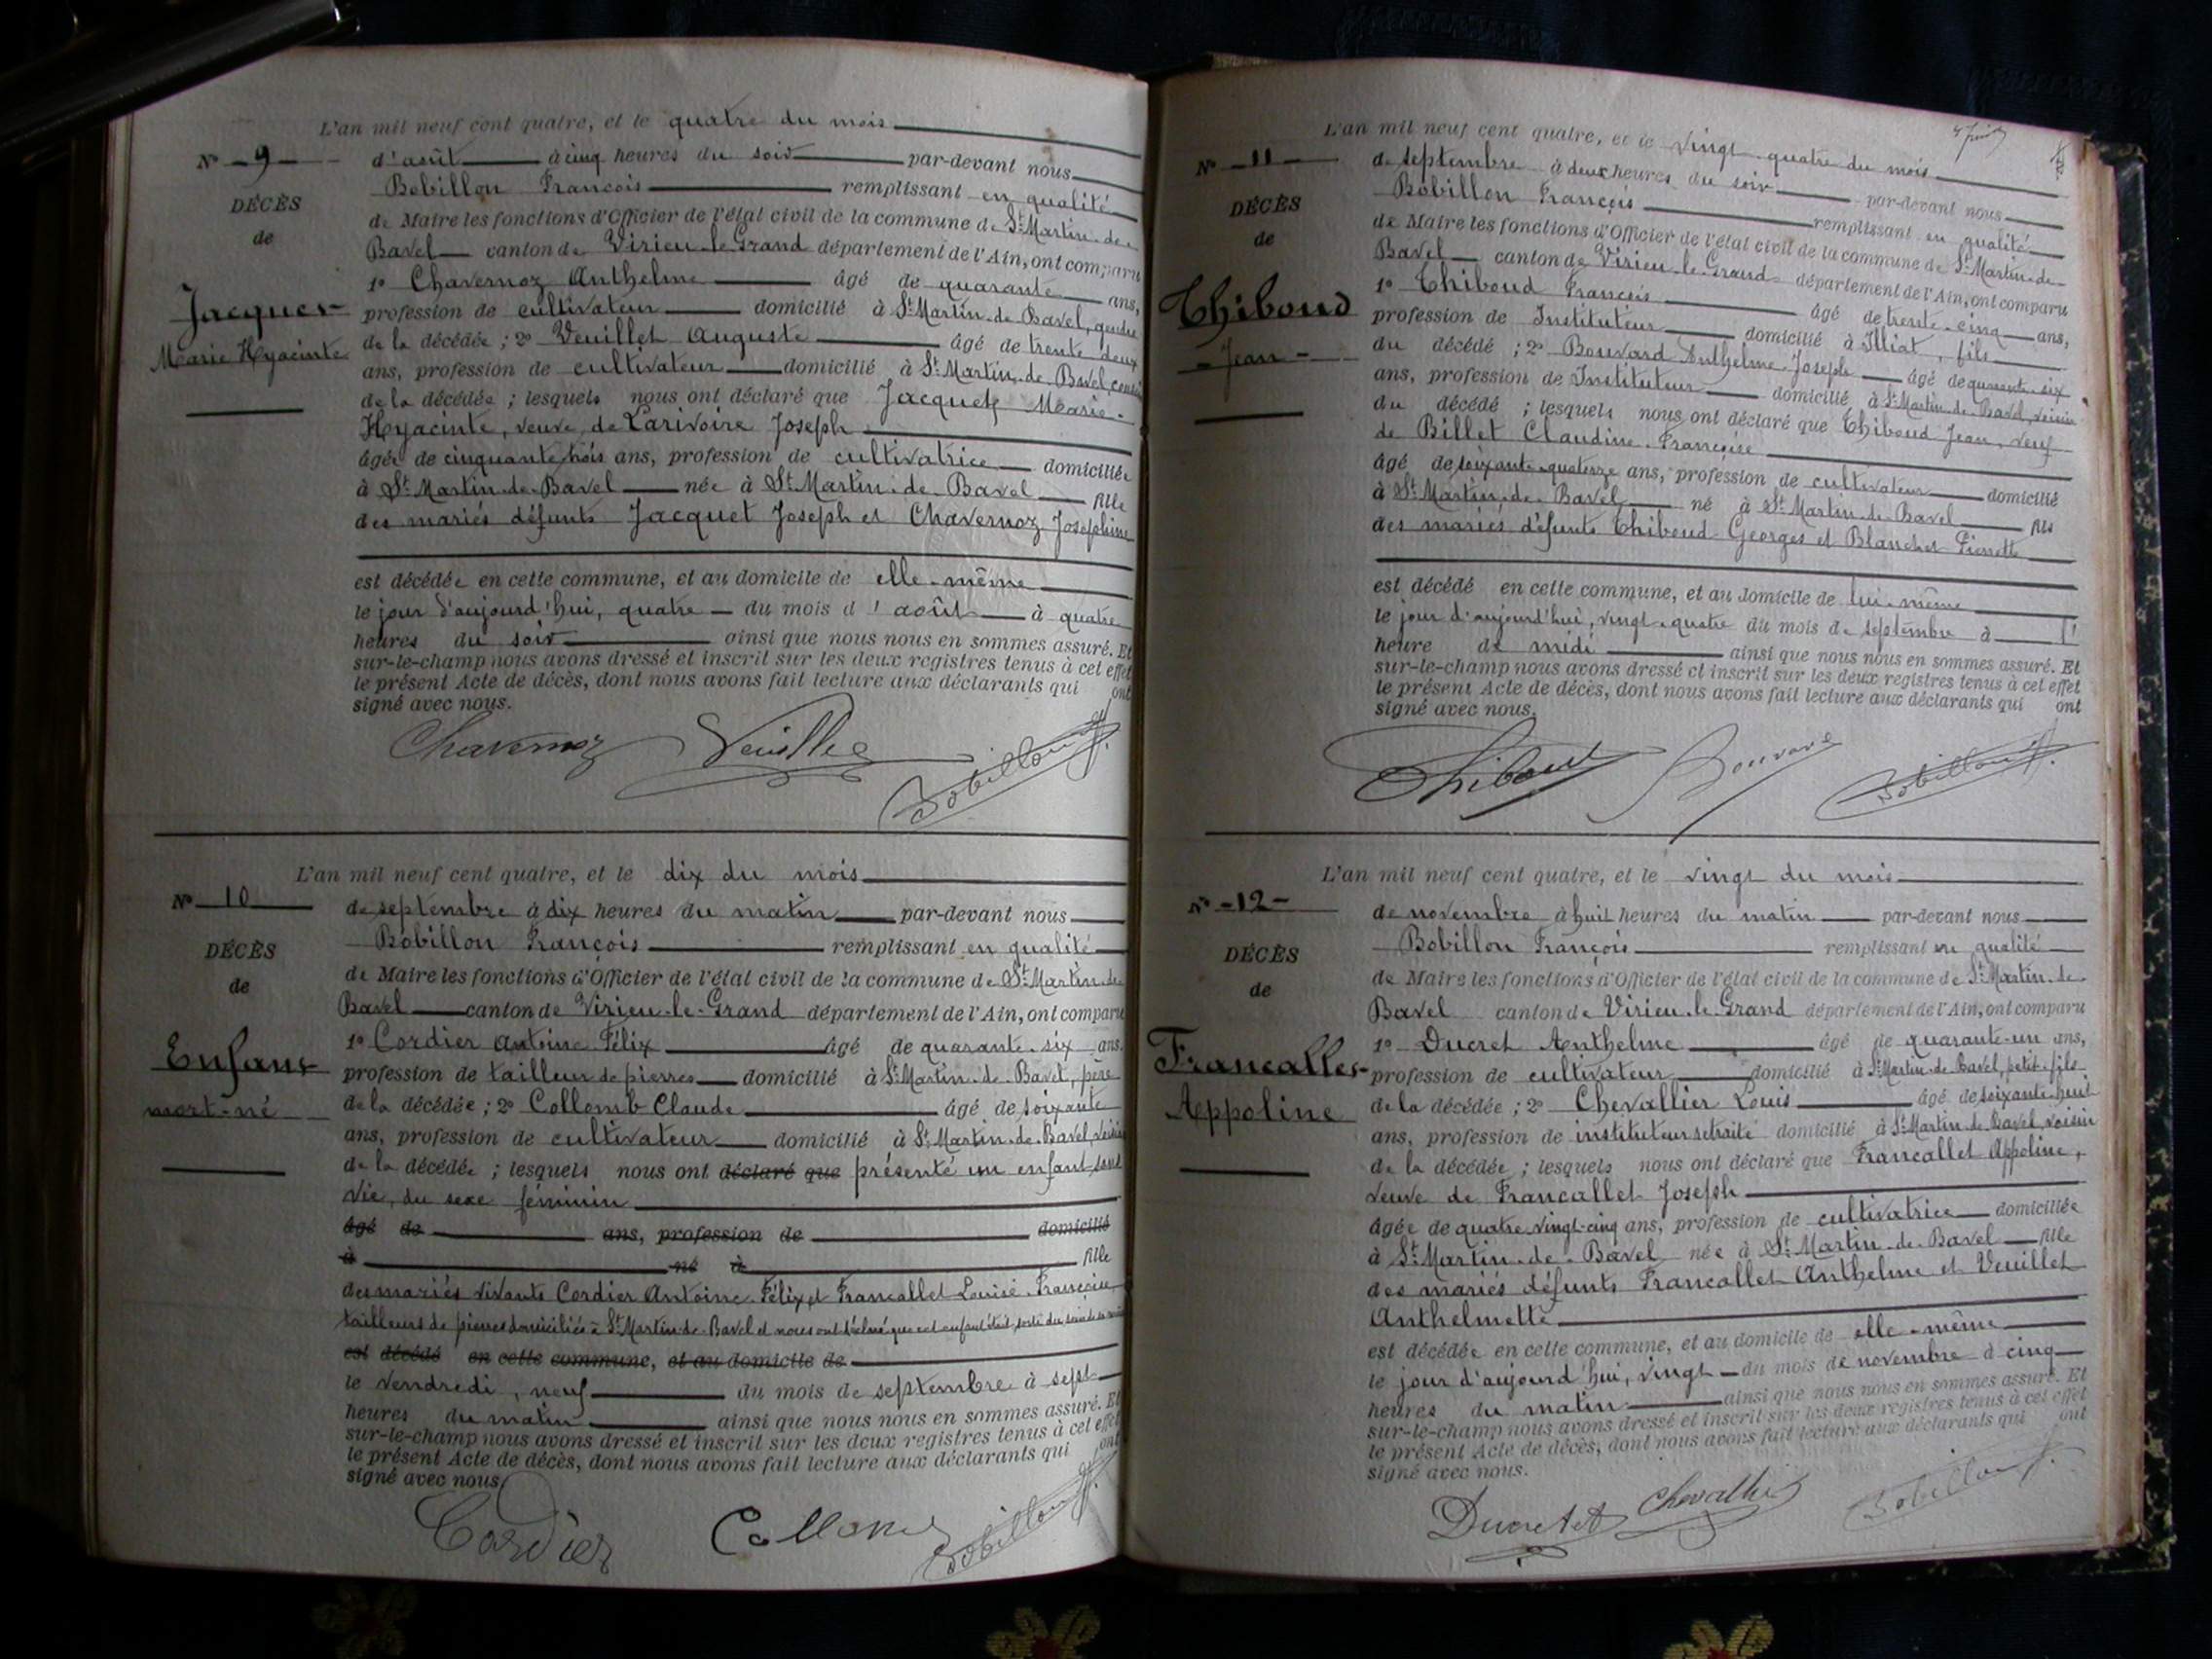 L'an mil neuf cent quatre, et le quatre du mois
N° 9
d'août à cinq heures du soir par-devant nous
DÉCÈS
Bobillon François remplissant en qualité
de
de Maire les fonctions d'Officier de l'état civil de la commune de St Martin-de-
Bavel canton de Virieu-le-Grand département de l'Ain, ont comparu
1° Chavernoz Anthelme âgé de quarante ans,
Jacquet
profession de cultivateur domicilié à St Martin-de-Bavel, gendre
Marie Hyacinte
de la décédée ; 2° Veuillet Auguste âgé de trente-deux
ans, profession de cultivateur domicilié à St Martin-de-Bavel, cousin
de la décédée ; lesquels nous ont déclaré que Jacquet Marie-
Hyacinte, veuve de Larivoire Joseph
âgée de cinquante trois ans, profession de cultivatrice domiciliée
à St Martin-de-Bavel née à St Martin-de-Bavel fille
des mariés défunts Jacquet Joseph et Chavernoz Josephine
est décédée en cette commune, et au domicile de elle-même
le jour d'aujourd'hui, quatre du mois d'août à quatre
heures du soir ainsi que nous nous en sommes assuré. Et
sur-le-champ nous avons dressé et inscrit sur les deux registres tenus à cet effet
le présent Acte de décès, dont nous avons fait lecture aux déclarants qui ont
signé avec nous.
Chavernoz Veuillet Bobillon f.
L'an mil neuf cent quatre, et le dix du mois
N° 10
de septembre à dix heures du matin par-devant nous
DÉCÈS
Bobillon François remplissant en qualité
de
de Maire les fonctions d'Officier de l'état civil de la commune de St Martin-de
Bavel canton de Virieu-le-Grand département de l'Ain, ont comparu
Enfant
1° Cordier Antoine Félix âgé de quarante-six ans,
mort-né
profession de tailleur de pierres domicilié à St Martin-de-Bavel, père
de la décédée ; 2° Collomb Claude âgé de soixante
ans, profession de cultivateur domicilié à St Martin-de-Bavel, voisin
de la décédée ; lesquels nous ont déclaré que présenté un enfant sans
vie, du sexe féminin
âgé de ans, profession de domicilié
à né à fille
des mariés vivants Cordier Antoine-Félix et Francallet Louise-Françoise,
tailleurs de pierres domiciliés à St Martin-de-Bavel et nous ont déclaré que cet enfant était sorti du sein de sa mère
est décédé en cette commune, et au domicile de
le vendredi, neuf du mois de septembre à sept
heures du matin ainsi que nous nous en sommes assuré. Et
sur-le-champ nous avons dressé et inscrit sur les deux registres tenus à cet effet
le présent Acte de décès, dont nous avons fait lecture aux déclarants qui ont
signé avec nous.
Cordier Collomb Bobillon f.
L'an mil neuf cent quatre, et le vingt-quatre du mois
N° 11
de septembre à deux heures du soir par-devant nous
DÉCÈS
Bobillon François remplissant en qualité
de
de Maire les fonctions d'Officier de l'état civil de la commune de St Martin-de-
Bavel canton de Virieu-le-Grand département de l'Ain, ont comparu
Thiboud
1° Thiboud François âgé de trente-cinq ans,
Jean
profession de Instituteur domicilié à Illiat, fils
du décédé ; 2° Bouvard Anthelme-Joseph âgé de quarante-six
ans, profession de Instituteur domicilié à St Martin-de-Bavel, voisin
du décédé ; lesquels nous ont déclaré que Thiboud Jean, veuf
de Billet Claudine-Françoise
âgé de soixante-quatorze ans, profession de cultivateur domicilié
à St Martin-de-Bavel né à St Martin-de-Bavel fils
des mariés défunts Thiboud Georges et Blanchet Pierrette
est décédé en cette commune, et au domicile de lui-même
le jour d'aujourd'hui, vingt-quatre du mois de septembre à l'
heure de midi ainsi que nous nous en sommes assuré. Et
sur-le-champ nous avons dressé et inscrit sur les deux registres tenus à cet effet
le présent Acte de décès, dont nous avons fait lecture aux déclarants qui ont
signé avec nous.
Thiboud Bouvard Bobillon f.
L'an mil neuf cent quatre, et le vingt du mois
N° 12
de novembre à huit heures du matin par-devant nous
DÉCÈS
Bobillon François remplissant en qualité
de
de Maire les fonctions d'Officier de l'état civil de la commune de St Martin-de
Bavel canton de Virieu-le-Grand département de l'Ain, ont comparu
Francallet
1° Ducret Anthelme âgé de quarante-un ans,
Appoline
profession de cultivateur domicilié à St Martin-de-Bavel, petit-fils
de la décédée ; 2° Chevallier Louis âgé de soixante-huit
ans, profession de instituteur retraité domicilié à St Martin-de-Bavel, voisin
de la décédée ; lesquels nous ont déclaré que Francallet Appoline,
veuve de Francallet Joseph
âgée de quatre vingt-cinq ans, profession de cultivatrice domiciliée
à St Martin-de-Bavel née à St Martin-de-Bavel fille
des mariés défunts Francallet Anthelme et Veuillet
Anthelmette
est décédée en cette commune, et au domicile de elle-même
le jour d'aujourd'hui, vingt du mois de novembre à cinq
heures du matin ainsi que nous nous en sommes assuré. Et
sur-le-champ nous avons dressé et inscrit sur les deux registres tenus à cet effet
le présent Acte de décès, dont nous avons fait lecture aux déclarants qui ont
signé avec nous.
Ducret At Chevallier Bobillon f.